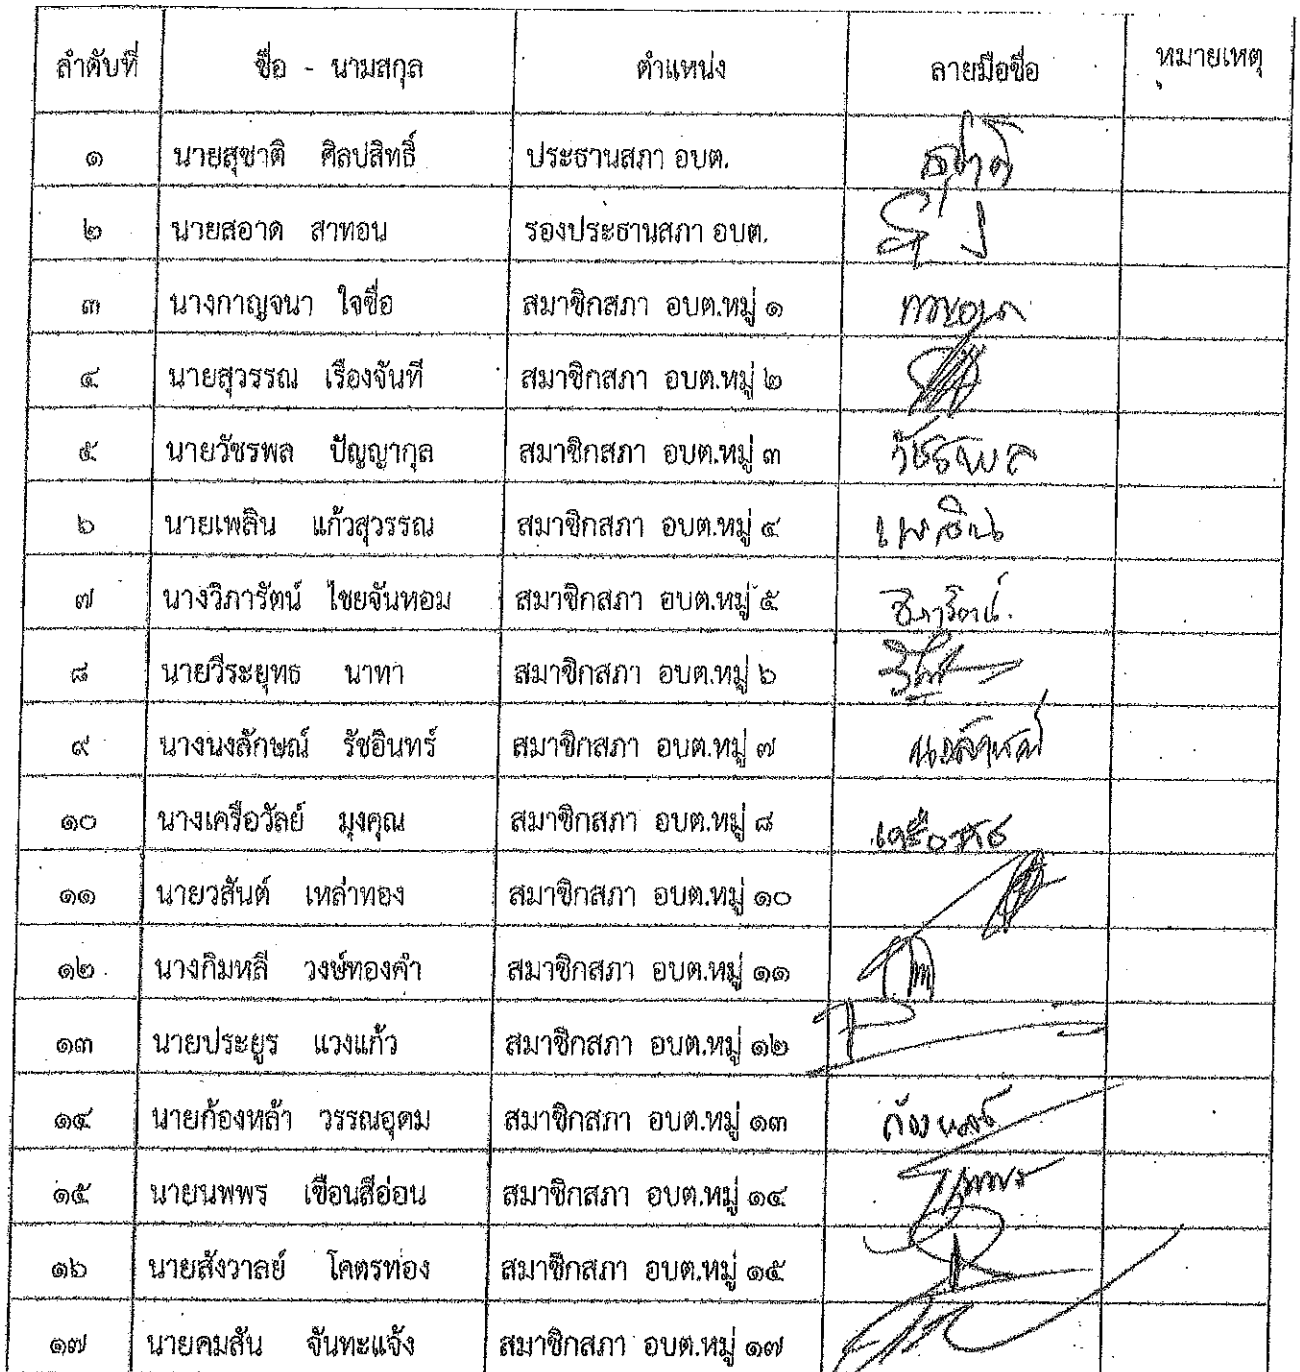 ลำดับที่ ชื่อ - นามสกุล ตำแหน่ง ลายมือชื่อ หมายเหตุ
๑ นายสุชาติ ศิลปสิทธิ์ ประธานสภา อบต. สุชาติ
๒ นายสอาด สาทอน รองประธานสภา อบต.
๓ นางกาญจนา ใจซื่อ สมาชิกสภา อบต.หมู่ ๑ กาญจนา
๔ นายสุวรรณ เรืองจันที สมาชิกสภา อบต.หมู่ ๒
๕ นายวัชรพล ปัญญากุล สมาชิกสภา อบต.หมู่ ๓ วัชรพล
๖ นายเพลิน แก้วสุวรรณ สมาชิกสภา อบต.หมู่ ๔ เพลิน
๗ นางวิภารัตน์ ไชยจันหอม สมาชิกสภา อบต.หมู่ ๕ วิภารัตน์
๘ นายวีระยุทธ นาทา สมาชิกสภา อบต.หมู่ ๖
๙ นางนงลักษณ์ รัชอินทร์ สมาชิกสภา อบต.หมู่ ๗ นงลักษณ์
๑๐ นางเครือวัลย์ มุงคุณ สมาชิกสภา อบต.หมู่ ๘ เครือวัลย์
๑๑ นายวสันต์ เหล่าทอง สมาชิกสภา อบต.หมู่ ๑๐
๑๒ นางกิมหลี วงษ์ทองคำ สมาชิกสภา อบต.หมู่ ๑๑
๑๓ นายประยูร แวงแก้ว สมาชิกสภา อบต.หมู่ ๑๒
๑๔ นายก้องหล้า วรรณอุดม สมาชิกสภา อบต.หมู่ ๑๓ ก้องหล้า
๑๕ นายนพพร เขือนสีอ่อน สมาชิกสภา อบต.หมู่ ๑๔ นพพร
๑๖ นายสังวาลย์ โคตรท่อง สมาชิกสภา อบต.หมู่ ๑๕
๑๗ นายคมสัน จันทะแจ้ง สมาชิกสภา อบต.หมู่ ๑๗